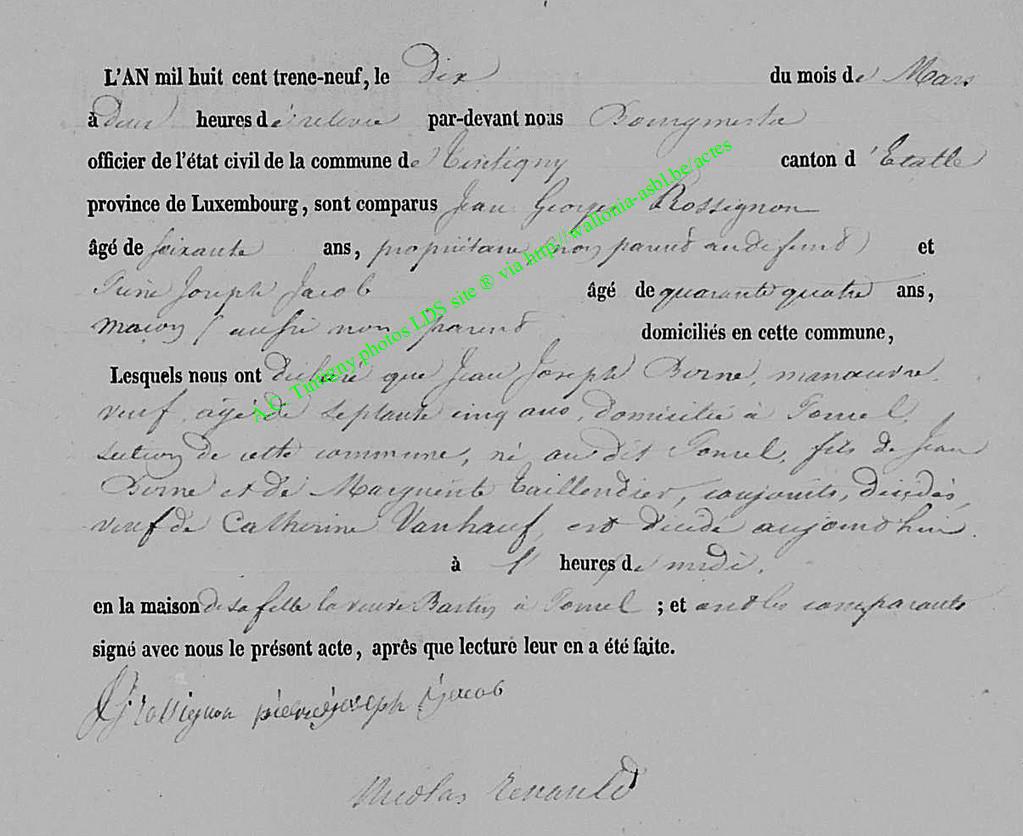 L'AN mil huit cent trene-neuf, le Dix du mois de Mars
à deux heures de relevée par-devant nous Bourgmestre
officier de l'état civil de la commune de Tintigny canton d'Etalle
province de Luxembourg, sont comparus Jean George Rossignon
âgé de soixante ans, propriétaire (non parent au defunt) et
Joseph Jacob âgé de quarante quatre ans,
maçon (aussi non parent domiciliés en cette commune,
Lesquels nous ont déclaré que Jean Joseph Borne, manoeuvre,
veuf, âgé de septante cinq ans, domicilié à
section de cette commune, né au dit fils de Jean
Borne et de Marguerite Taillendier, conjoints, décédés,
veuf de Catherine Vanhauf, est décédé aujourd'hui
à 1 heures de midi,
en la maison de sa fille la veuve à ; et ont les comparants
signé avec nous le présent acte, après que lecture leur en a été faite.
Rossignon pierre joseph jacob
Nicolas Renauld
A.C. Tintigny photos LDS site ® via http://wallonia-asbl.be/actes